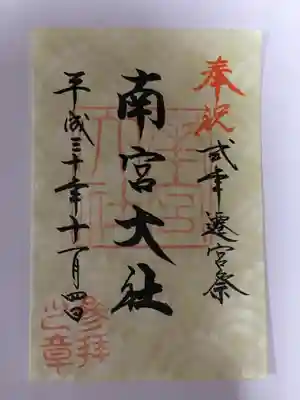 奉祝 式年遷宮祭
南宮大社
平成三十年十一月四日
参拝之章